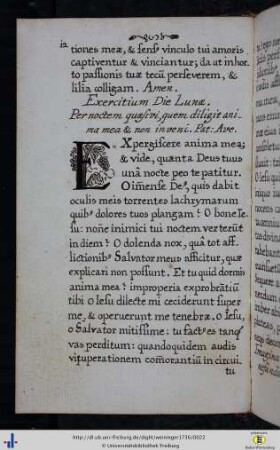 tiones meæ, & sens9 vinculo tui amoris
captiventur & vinciantur; da ut in hor
to passionis tuæ tecū perseverem, &
lilia colligam. Amen.
Exercitium Die Lunæ.
Per noctem quæsivi, quem diligit ani
ma mea & non inveni. Pat: Ave.
EXpergiscere anima mea;
& vide, quanta Deus tuus
unâ nocte pro te patitur.
O im̄ense De9, quis dabit
oculis meis torrentes lachrymarum
quib9 dolores tuos plangam? O bone Je
su: nōne inimici tui noctem verterūt
in diem? O dolenda nox, quâ tot aff
lictionib9 Salvator meus afficitur, quæ
explicari non possunt. Et tu quid dormis
anima mea? improperia exprobrantiū
tibi O Jesu dilecte mi ceciderunt super
me, & operuerunt me tenebræ. O Jesu,
o Salvator mitissime: tu fact9 es tanq̄
vas perditum: quandoquidem audis
vituperationem com̄orantiū in circui.
tu
http://dl.ub.uni-freiburg.de/diglit/weininger1736/0022
© Universitätsbibliothek Freiburg